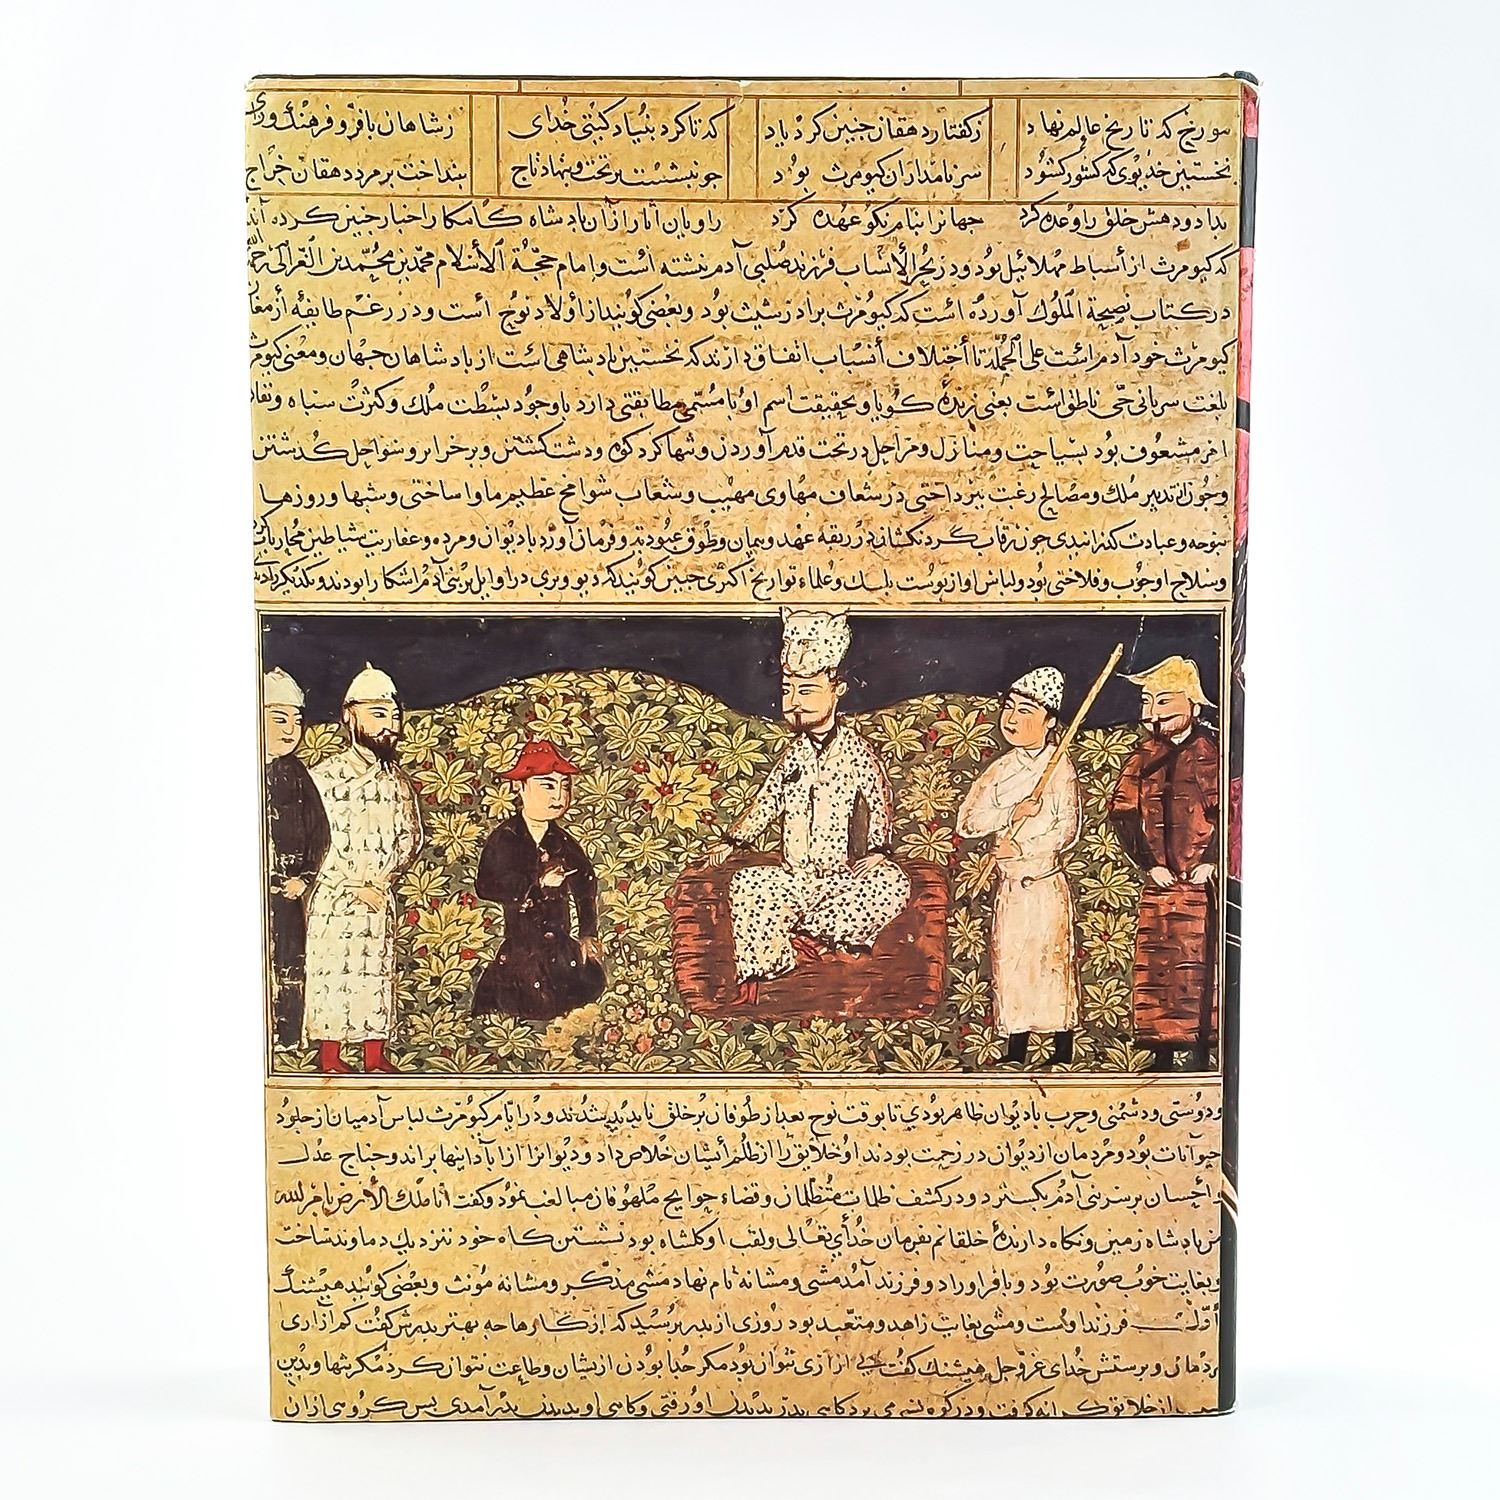 مورخ که تاریخ عالم نهاد زکفتار دهقان جنین کرد یاد که تا کرد بنیاد کیتی خدای زشاهان بافر و فرهنک ورای
نخستین خدیوی که کشور کشود سر نامداران کیومرث بود جو بنشست بر تخت و بنهاد تاج بنداخت بر مرد دهقان خراج
بداد و دهش خلق را وعده کرد جهانرا بنام نکو عهده کرد راویان آثار از آن بادشاه کامکار اخبار جنین کرده اند
که کیومرث از أسباط مهلائیل بود ودر بحر الأنساب فرزند صلبی آدم نبشته است وامام حجة الأسلام محمد بن محمد بن الغزالی رحمه الله
در کتاب نصیحة الملوک آورده است که کیومرث برادر شیث بود وبعضی کویند از أولاد نوح است ودر زعم طایفهٔ از مغان
کیومرث خود آدم است علی الجمله با أختلاف أنساب اتفاق دارند که نخستین بادشاهی است از بادشاهان جهان ومعنی کیومرث
بلغت سریانی حی ناطق است یعنی زندهٔ کویا وبحقیقت اسم او با مسمی مطابقتی دارد با وجود بسطت ملک وکثرت سباه ونفاذ
امر مشعوف بود بسیاحت ومنازل ومراحل در تحت قدم آوردن وتنها کرد کوه ودشت کشتن وبر خراب وسواحل کذشتن
وجون از تدبیر ملک ومصالح رغبت بردداختی در شعاف مهاوی مهیب وشعاب شوامخ عظیم ماوا ساختی وشبها وروزها
بتوجه وعبادت کذرانیدی جون رقاب کردنکشان در ربقه عهد وبیمان وطوق عبودیت وفرمان آورد با دیوان ومرده وعفاریت شیاطین محاربات کرد
وسلاح او جوب وفلاخن بود ولباس او از بوست بلنک وعلماء تواریخ اکثری جنین کویند که دیو وبری در اوایل بر بنی آدم اشکارا بودند ویکدیکر را دیدندی
ودوستی ودشمنی وحرب با دیوان ظاهر بودی تا بوقت نوح بعد از طوفان بر خلق نابدید شدند ودر ایام کیومرث لباس آدمیان از جلود
حیوانات بود ومردمان از دیوان در زحمت بودند او خلایق را از ظلم أیشان خلاص داد ودیوانرا از آبادانیها براند وجناح عدل
واحسان بر سر بنی آدم بکسترد ودر کشف ظلمات متظلمان وقضاء حوایج ملهوفان مبالغت نمود وکفت أنا ملک الأرض بأمر الله
من بادشاه زمین ونکاه دارندهٔ خلقانم بفرمان خدأی تعالی ولقب او کلشاه بود نشستن کاه خود نزدیک دماوند ساخت
وبغایت خوب صورت بود وبا فر اورا دو فرزند آمد مشی ومشانه نام نهاد مشی مذکر ومشانه مونث وبعضی کویند هیشنک
أول فرزند اوست ومشی بغایت زاهد ومتعبد بود روزی از بدر برسید که از کارها جه بهتر بدرش کفت کم آزاری
مردمان وبرستش خدای عز وجل هیشنک کفت بی ازاری نتوان بود مکر جدا بودن ازیشان وطاعت نتوان کرد مکر تنها وبدین
از خلایق کرانه کرفت ودر کوه بدر بدیدن او رفتی وکاهی او بدیدن بدر آمدی بس کروهی از ان